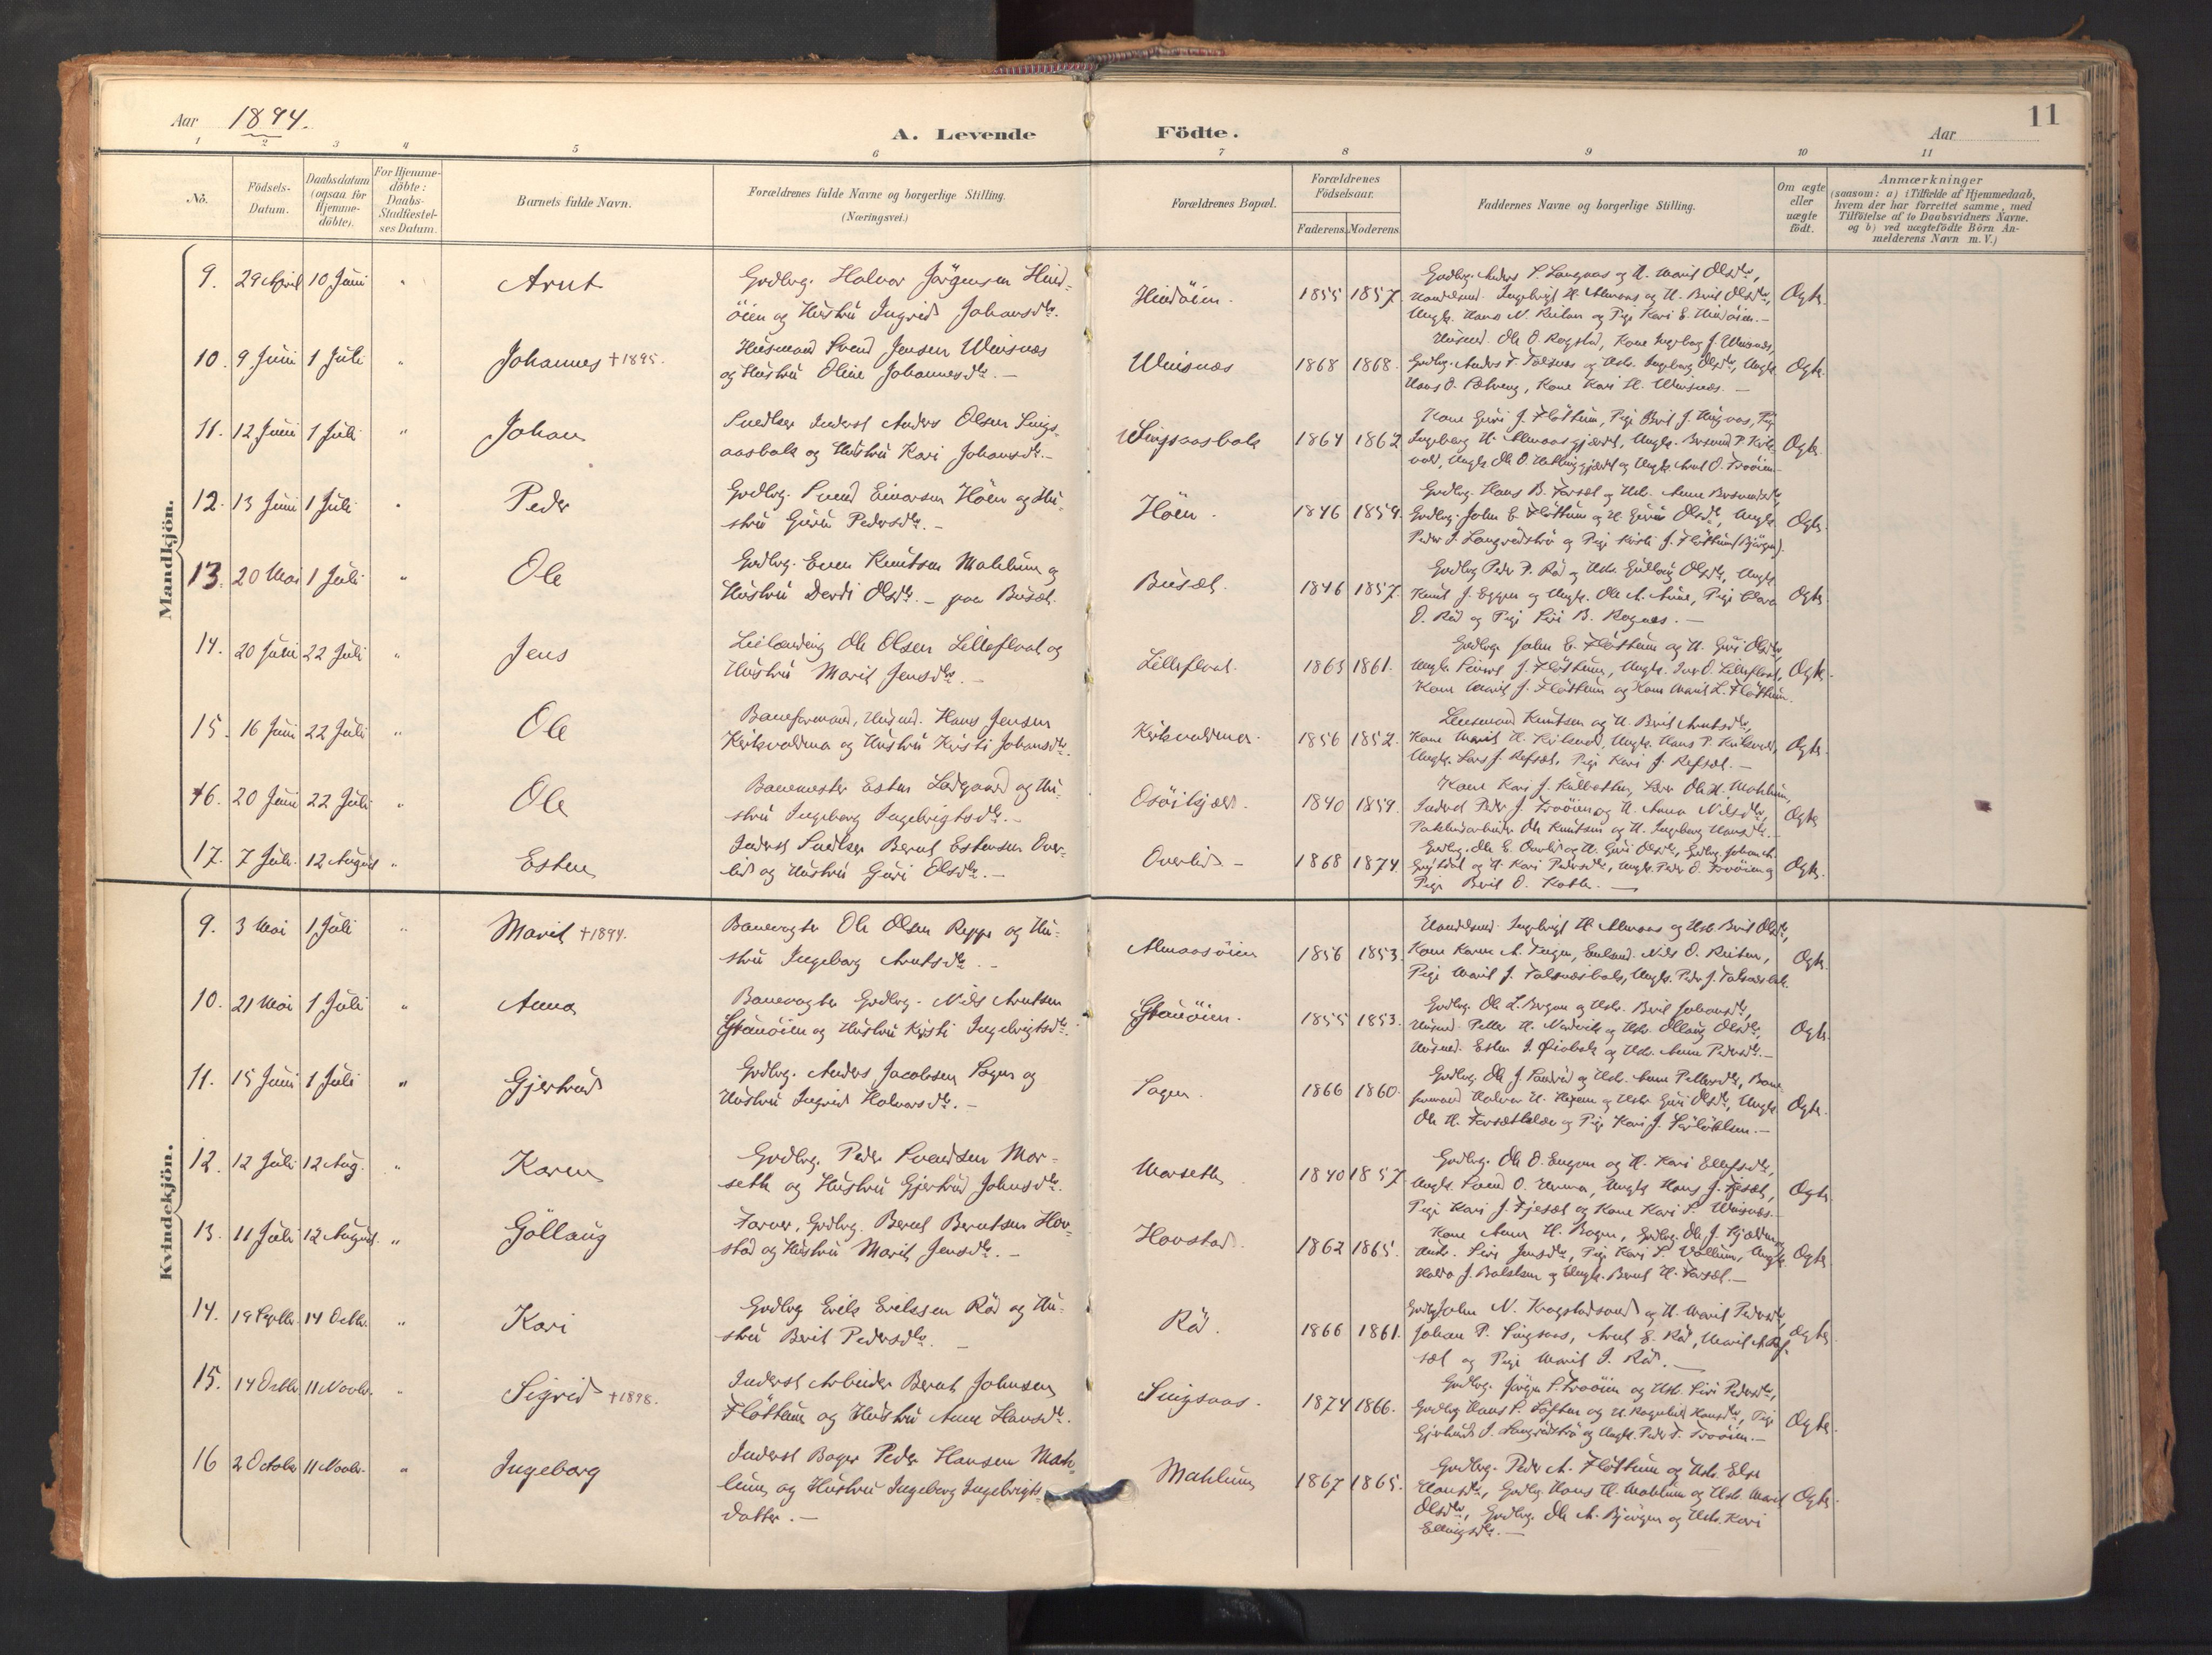 Aar 1894.
A. Levende
Födte.
Aar
11
1
2
3
4
5
6
7
8
9
10
11
No.
Födsels-Datum.
Daabsdatum (ogsaa for Hjemmedöbte).
For Hjemmedöbte: Daabs-Stadfæstelses Datum.
Barnets fulde Navn.
Forældrenes fulde Navne og borgerlige Stilling. (Næringsvei.)
Forældrenes Bopæl.
Forældrenes Födselsaar.
Faderens. Moderens.
Faddernes Navne og borgerlige Stilling.
Om ægte eller uægte födt.
Anmærkninger
(saasom: a) i Tilfælde af Hjemmedaab, hvem der har forrettet samme, med Tilföielse af to Daabsvidners Navne. og b) ved uægtefödte Börn Anmelderens Navn m. V.)
Mandkjön.
9. 29 April 10 Juni " Arnt
Grdbrg. Halvor Jörgensen Hind-
öien og Hustru Ingrid Johansdtr.
Hindöien. 1855 1857.
Grdbrg. Anders P. Langaas og H. Marit Olsdtr,
Handelsmd. Ingebrigt H. Almaas og H. Berit Olsdtr,
Ungk. Hans N. Reitan og Pige Kari E. Hindöien.-
Ogte.
10. 9 Juni 1 Juli " Johannes †1895.
Husmand Svend Jensen Winsnæs
og Hustru Oline Johannesdtr. -
Winsnæs 1868 1868.
Husmd. Ole O. Rogstad, Kone Ingebog J. Winsnæs,
Grdbrg. Anders F. Talsnes og Hstr. Ingeborg Olsdtr, Ungk.
Hans O. , Kone Kari H. Winsnæs. -
Ogte.
11. 12 Juni 1 Juli " Johan
Snedker Inderst Anders Olsen Sings-
aasbak og Hustru Kari Johansdtr.-
Singsaasbak 1864 1862
Kone Guri J. Flöttum, Pige Berit J. , Pige
Ingeborg H. Almaasgjærdet, Ungk. P. Kirk-
vold, Ungk. Ole O. og Ungk. Arnt O. Troöien-
Ogte.
12. 13 Juni 1 Juli " Peder
Grdbrg. Svend Einarsen Höen og Hu-
stru Guru Pedersdtr. -
Höen. 1846 1854.
Grdbrg. Hans B. Forsæt og Hstr. Anne
Grdbrg. John E. Flöttum og H. Guru Olsdtr, Ungk.
Peder J. og Pige Kirsti J. Flöttum (Bjørgen).
Ogte.
13. 20 Mai 1 Juli " Ole
Grdbrg. Even Knutsen Mahlum og
Hustru Dordi Olsdtr. - paa Busæt.
Busæt. 1846 1857.
Grdbrg Peder P. Rød og Hstr. Gullaug Olsdtr, Ungk.
Knut J. Eggen og Ungk. Ole A. , Pige
O. Rød og Pige Siri B. Rognes. -
Ogte.
14. 20 Juni 22 Juli " Jens
Leilænding Ole Olsen Lilleflaat og
Hustru Marit Jensdtr. -
Lilleflaat. 1863 1861.
Grdbrg. John E. Flöttum og H. Guri Olsdtr,
Ungk. J. Flöttum, Ungk. Iver O. Lilleflaat,
Kone Marit J. Flöttum og Kone Marit L. Flöttum.
Ogte.
15. 16 Juni 22 Juli " Ole
Baneformand, Husmd. Hans Jensen
Kirkvoldmo og Hustru Kirsti Johansdtr.
Kirkvoldmoen. 1856 1852.
Lensmand Knutsen og H. Berit Arntsdtr,
Kone Marit H. Kirkvold, Ungk. Hans P. Kirkvold,
Ungk. Lars J. Refsæt, Pige Kari J. Refsæt. -
Ogte.
16. 20 Juni 22 Juli " Ole
Banemester Esten Ladgaard og Hu-
stru Ingeborg Ingebrigtsdtr. -
Osöikjæld. 1840 1854.
Kone Kari J. , Lærer Ole H. Mahlum,
Inderst Peder J. Troöien og H. Anna Nilsdtr,
Pakhusarbeider Ole Knutsen og H. Ingeborg Hansdtr. -
Ogte
17. 7 Juli. 12 August " Esten
Inderst Snedker Berent Estensen Over-
lid og Hustru Guri Olsdtr. -
Overlid - 1868 1874.
Grdbrg. Ole E. Overlid og H. Guri Olsdtr, Grdbrg. Johan A.
og H. Kari Pedersdtr, Ungk. Peder O. Troöien og
Pige Berit O. Kotte. -
Ogte.
Kvindekjön.
9. 3 Mai 1 Juli " Marit †1894.
Banevogter Ole Olsen Reppe og Hu-
stru Ingeborg Arntsdtr. -
Almaasöien 1856 1853.
Handelsmd. Ingebrigt H. Almaas og Hstr. Berit Olsdtr,
Kone Karen A. , Nils O. Reitan,
Pige Marit J. Talsnæsbak, Ungk. Peder J. Talsnæsbak.
Ogte.
10. 21 Mai 1 Juli " Anna
Banevogter Grdbrg. Nils Arntsen
Granöien og Hustru Kirsti Ingebrigtsdtr.
Granöien. 1855 1853.
Grdbrg. Ole L. Bergan og Hstr. Berit Johansdtr,
Husmd. Petter H. Nordvik og Hstr. Ollaug Olsdtr,
Husmd. Esten J. og Hstr. Anne Pedersdtr.-
Ogte.
11. 15 Juni 1 Juli " Gjertrud
Grdbrg. Anders Jacobsen Sagen og
Hustru Ingrid Halvorsdtr. -
Sagen. 1866 1860.
Grdbrg. Ole J. og Hstr. Anne Pettersdtr, Bane-
formand Halvor H. og Hstr. Guri Olsdtr, Ungk.
Ole H. og Pige Kari J. . -
Ogte.
12. 12 Juli 12 Aug. " Karen
Grdbrg. Peder Svendsen Mor-
seth og Hustru Gjertrud Johnsdtr.
Morseth. 1840 1857.
Grdbrg. Ole O. Engen og H. Kari Ellefsdtr,
Ungk. Svend O. , Ungk Hans J. Fjesæt,
Pige Kari J. Fjesæt og Kone Kari S. Winsnæs.-
Ogte.
13. 11 Juli 12 August. " Göllaug
Farver, Grdbrg. Berent Berntsen Hov-
stad og Hustru Marit Jensdtr. -
Hovstad. 1862 1865.
Kone Anne H. Bogen, Grdbrg. Ole J. Kjelden,
Hstr. Siri Jensdtr, Pige Kari S. Vollum, Ungk.
J. og Ungk. Berent H. Forsæt. -
Ogte
14. 19 Septbr. 14 Octbr. " Kari
Grdbrg Erik Eriksen Röd og Hu-
stru Berit Pedersdtr. -
Röd. 1866 1861.
Grdbrg John N. Krogstadsand og H. Marit Pedersdtr,
Johan P. Singsaas, Arnt E. Röd, Marit A. Ref-
sæt og Pige Marit I. Röd. -
Ogte.
15. 14 Octbr 11 Novbr. " Sigrid †1898.
Inderst Arbeider Berent Johnsen
Flöttum og Hustru Anne Hansdtr.
Singsaas. 1874 1866.
Grdbrg. Jörgen P. Troöien og Hstr. Siri Pedersdtr,
Grdbrg Hans P. og H. Ragnhild Hansdtr, Pige
Gjertrud J. og Ungk. Peder F. Troöien. -
Ogte.
16 2 October 11 Novbr. " Ingeborg
Inderst Bager Peder Hansen Mah-
lum og Hustru Ingeborg Ingebrigts-
datter. -
Mahlum 1867 1865.
Grdbrg. Peder A. Flöttum og Hstr. Else
Hansdtr, Grdbrg. Hans H. Mahlum og Hstr. Marit
Olsdtr, Grdbrg. Ole A. Bjørgen og Hstr. Kari
Ellingsdtr. -
Ogte.